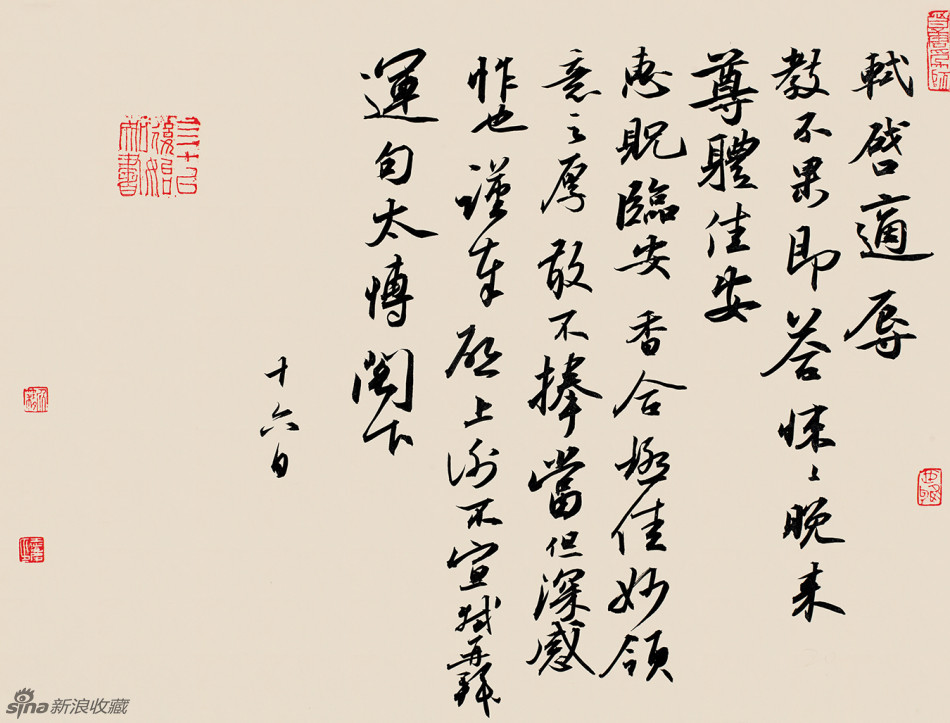 軾啓適辱
教不果即答悚〻晚来
尊體佳安
惠貺臨安香合極佳妙領
意之厚敢不捧當但深感
怍也謹奉啓上謝不宣軾再拜
運句太愽閣下
十六日
sina新浪收藏